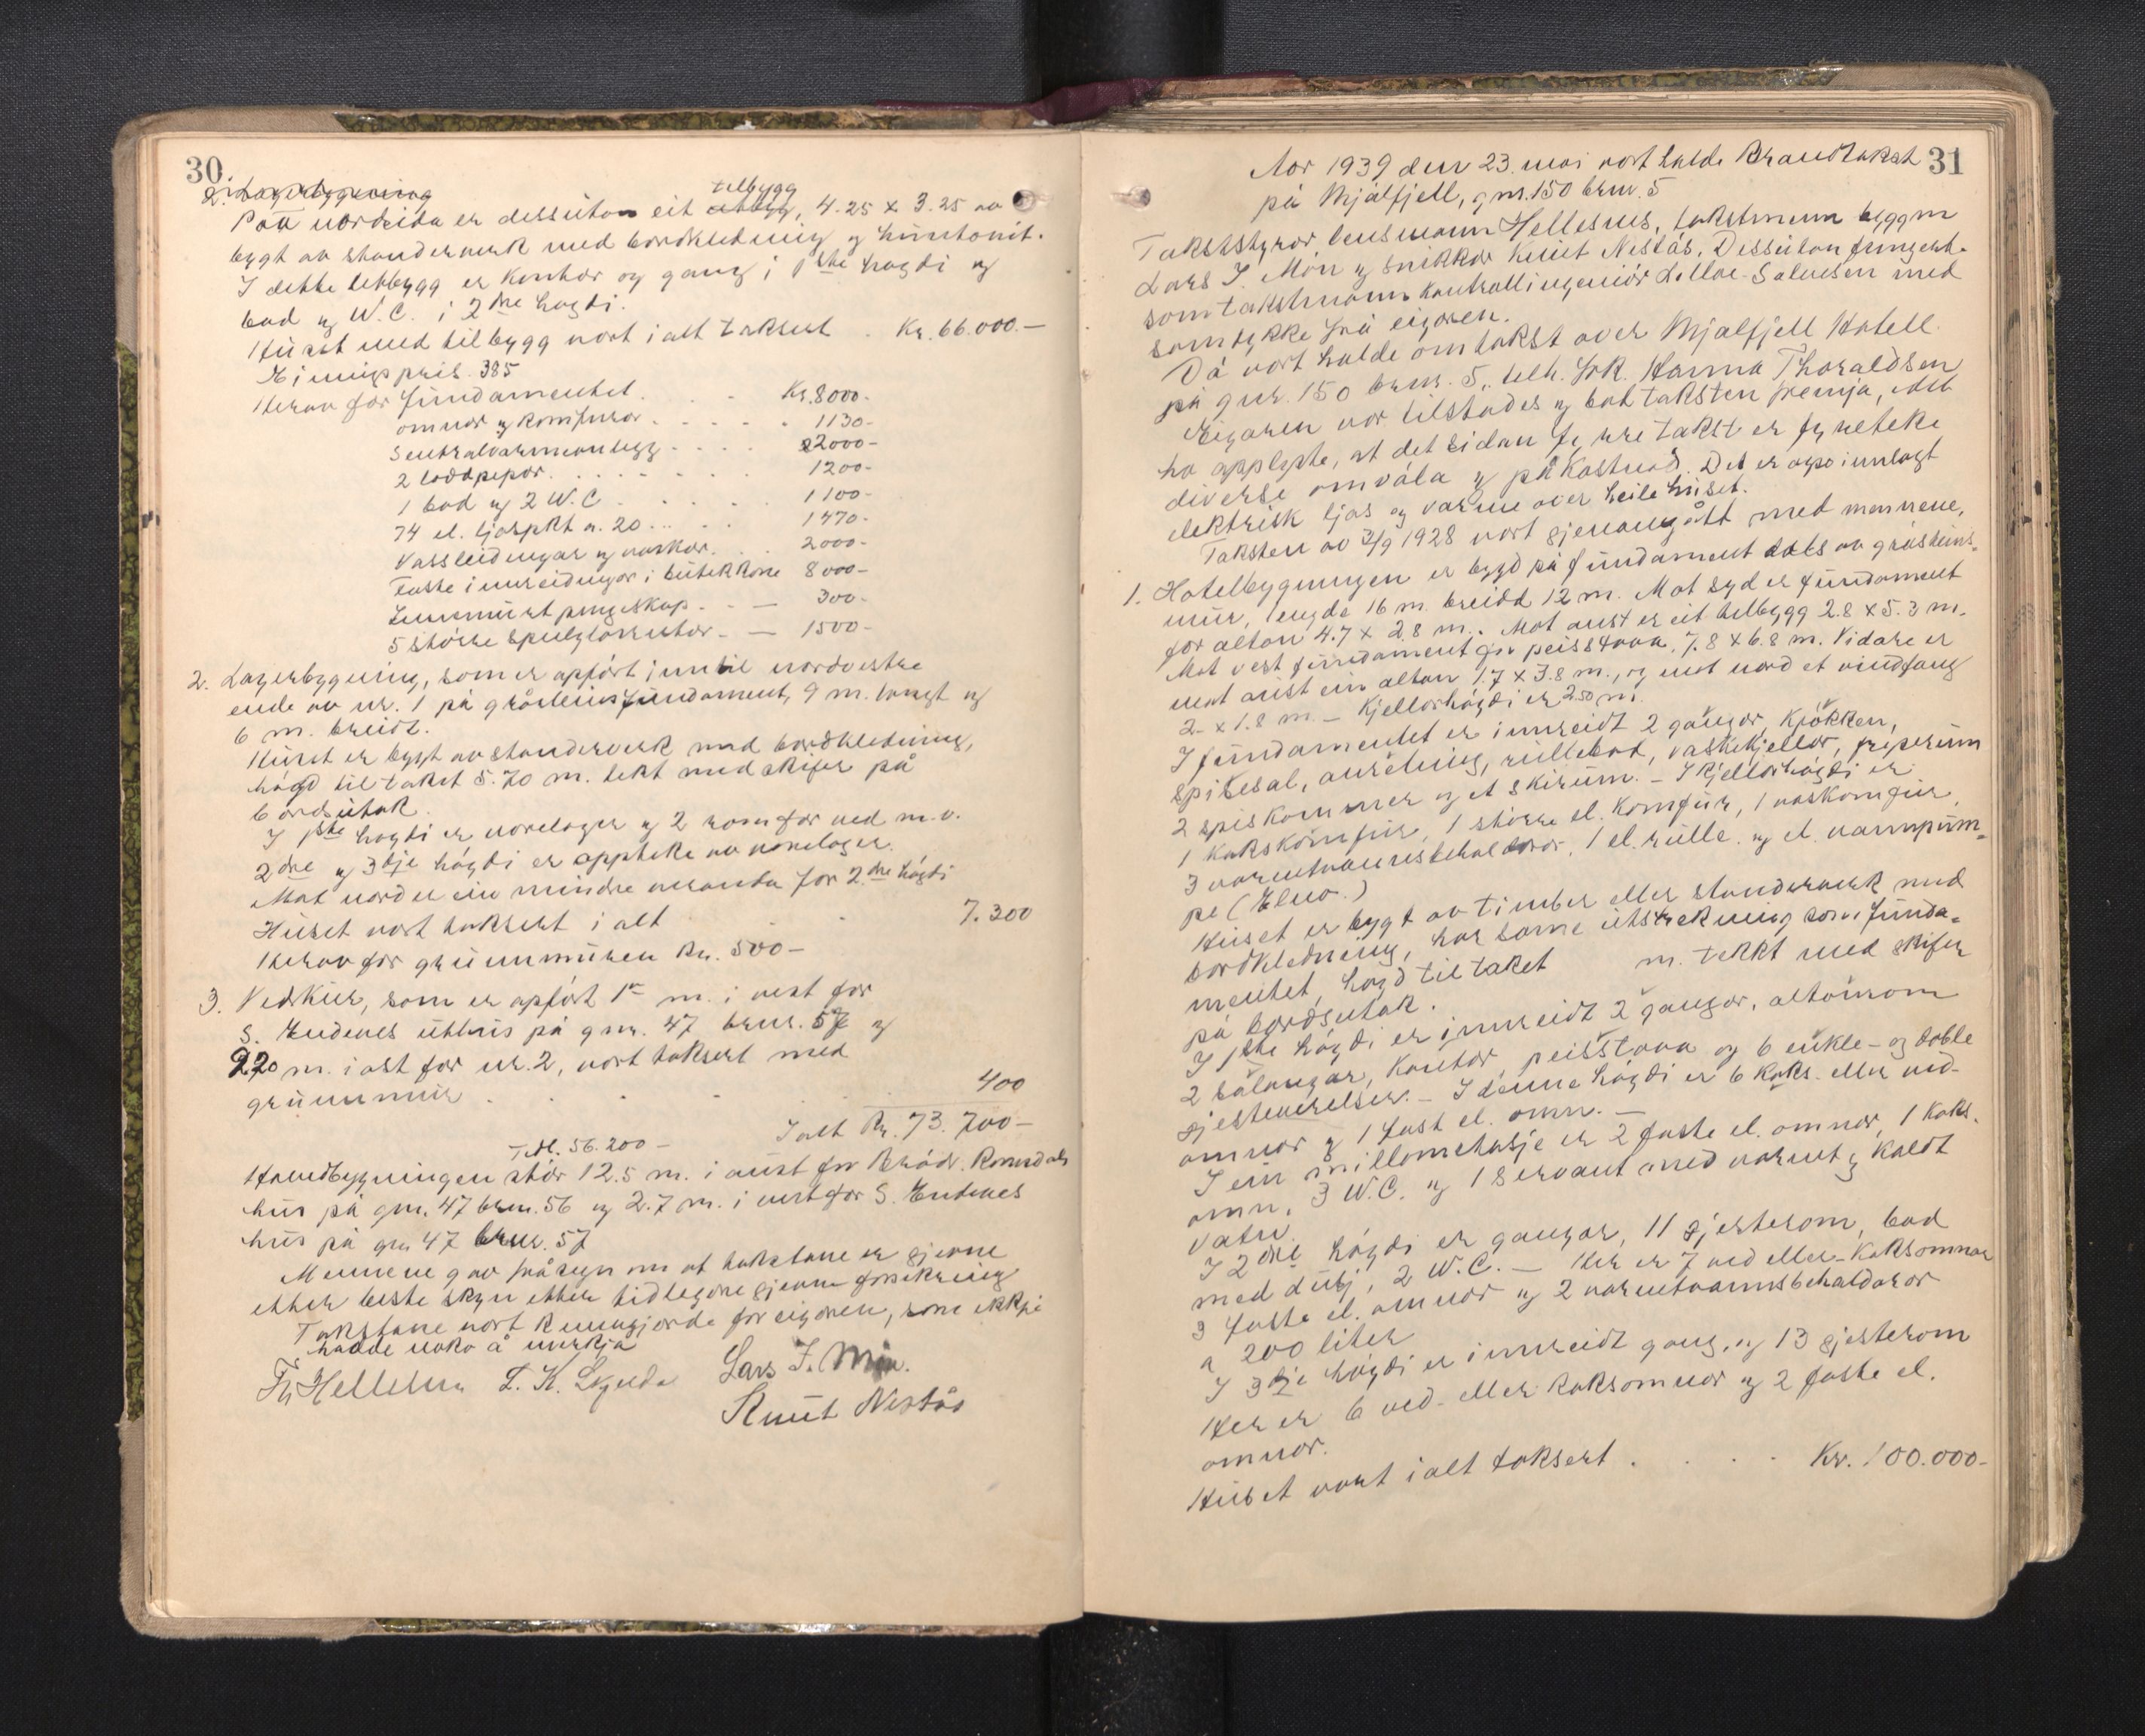 30
2. Lagerbygning
tilbygg
Paa nordsida er dessuton eit utbygg, 4.25 x 3.25 m
bygt av standerverk med bordkledning og huntonit.
I dette tilbygg er kontor og gang i 1ste høgdi og
bad og W.C. i 2dre høgdi.
Huset med tilbygg vort i alt taksert . Kr. 66.000.—
Einingspris 385
Herav for fundamentet . . . Kr. 8000-
omnar og komfurar . . . . . 1130-
Sentralvarmeanlegg . . . . 22000-
2 loddpipor . . . . . . . 1200-
1 bad og 2 W.C . . . . . 1100-
74 el. ljospkt a. 20 . . . . . 1470-
Vassleidningar og vaskar. . . 2000-
Faste innreidningar i butikkane 8000-
Innmurt pengeskap. . — 300-
5 større speilglasrutor. — 1500-
2. Lagerbygning, som er opført inntil nordvestre
ende av nr. 1 på gråsteinsfundament, 9 m. langt og
6 m. breidt.
Huset er bygt av standerverk med bordkledning,
høgd til taket 5.70 m. tekt med skifer på
bordsutak.
I 1ste høgdi er varelager og 2 rom for ved m.v.
2dre og 3dje høgdi er og varelager.
Mot nord er ein mindre veranda for 2dre høgdi
Huset vort taksert i alt . . 7.300
Herav for grunnmuren kr. 500-
3. Vedskur, som er opført 1 m. i vest for
S. Endenes uthus på gnr. 47 brnr. 57 og
220 m. i ost for nr. 2, vort taksert med
grunnmur . . . . 400
Ialt Kr. 73.700-
Tidl. 56.200-
Hovudbygningen står 12.5 m. i aust for Brødr. Romsdals
hus på gnr. 47 brnr. 56 og 2.7 m. i vest for S. Endenes
hus på gnr 47 brnr. 57
Mennene gav fråsegn um at takstane er gjevne
etter beste skyn etter tidlegare gjevn forsikring
Takstane vort kunngjorde for eigaren, som ikkje
hadde noko å merkja
Fr Hellesnes L. K. Lars J. Mön.
Knut Nestås
31
Aar 1939 den 23. mai vort halde Brandtakst
på Mjølfjell, gnr. 150 brnr. 5
Takststyrar lensmann Hellesnes, takstmenn byggm
Lars J. Món og snikkar Knut Nestås. Dessutan fungerte
som takstmann kontrollingeniør Lilloe-Salvesen med
samtykke frå eigaren.
Då vort halde omtakst over Mjølfjell Hotell
på gnr. 150 brnr. 5, tilh. frk. Hanna Thoraldsen
Eigaren var tilstades og bad taksten fremja, idet
ho opplyste, at det sidan fyrre takst er fyreteke
diverse omvøla og påkostnad. Det er ogso innlagt
elektrisk ljos og varme over heile huset.
Taksten av 3/9 1928 vort gjenomgått med mennene,
1. Hotelbygningen er bygd på fundament dels av gråsteins-
mur, lengde 16 m. breidd 12 m. Mot syd er fundament
for altan 4.7 x 2.8 m. Mot aust er eit tilbygg 2.8 x 5.3 m.
Mot vest fundament for peisstova, 7.8 x 6.8 m. Vidare er
mot aust ein altan 1.7 x 3.8 m., og mot nord et vindfang
2 x 1.8 m. — Kjellarhøgdi er 2.50 m.
I fundamentet er innreidt 2 gangar, kjøkken,
spisesal, anretning, rullebod, vaskekjellar, fryserum
2 spiskammer og et skirum. — I kjellarhøgdi er
1 kokskomfur, 1 større el. komfur, 1 vaskomfur,
3 varmtvannsbehaldarar, 1 el. rulle. og el. vannpum-
pe (Elno.)
Huset er bygt av timber eller standerverk med
bordkledning, har same utstrekning som funda-
mentet, høgd til taket m. tekkt med skifer
på bordsutak.
I 1ste høgdi er innreidt 2 gangar, altanrom
2 salongar, kontor, peisstova og 6 enkle- og doble
gjesteverelser. — I denne høgdi er 6 koks- eller ved-
omnar og 1 fast el. omn. —
I ein millometasje er 2 faste el. omnar, 1 koks-
omn, 3 W.C. og 1 servant med varmt og kaldt
vatn.
I 2dre høgdi er gangar, 11 gjesterom, bad
med dusj, 2 W.C. — Her er 7 ved eller-koksomnar
3 faste el. omnar og 2 varmtvannsbehaldarar
a 200 liter
I 3dje høgdi er innreidt gang, og 13 gjesterom
Her er 6 ved- eller koksomnar og 2 faste el.
omnar.
Huset vort i alt taksert . . . . Kr. 100.000-